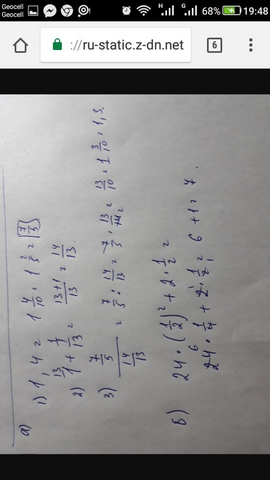 Geocell
Geocell
68% 19:48
https://ru-static.z-dn.net 6
а)
1) 1,4 = 1 4/10 = 1 2/5 = 7/5
2) 13/1 + 1/13 = 13+1/13 = 14/13
3) 7/5 / 14/13 = 7/5 : 14/13 = 7/5 · 13/14 = 13/10 = 1 3/10 = 1,3.
б) 24 · (1/2)² + 2 · 1/2 =
24 · 1/4 + 2 · 1/2 = 6 + 1 = 7.